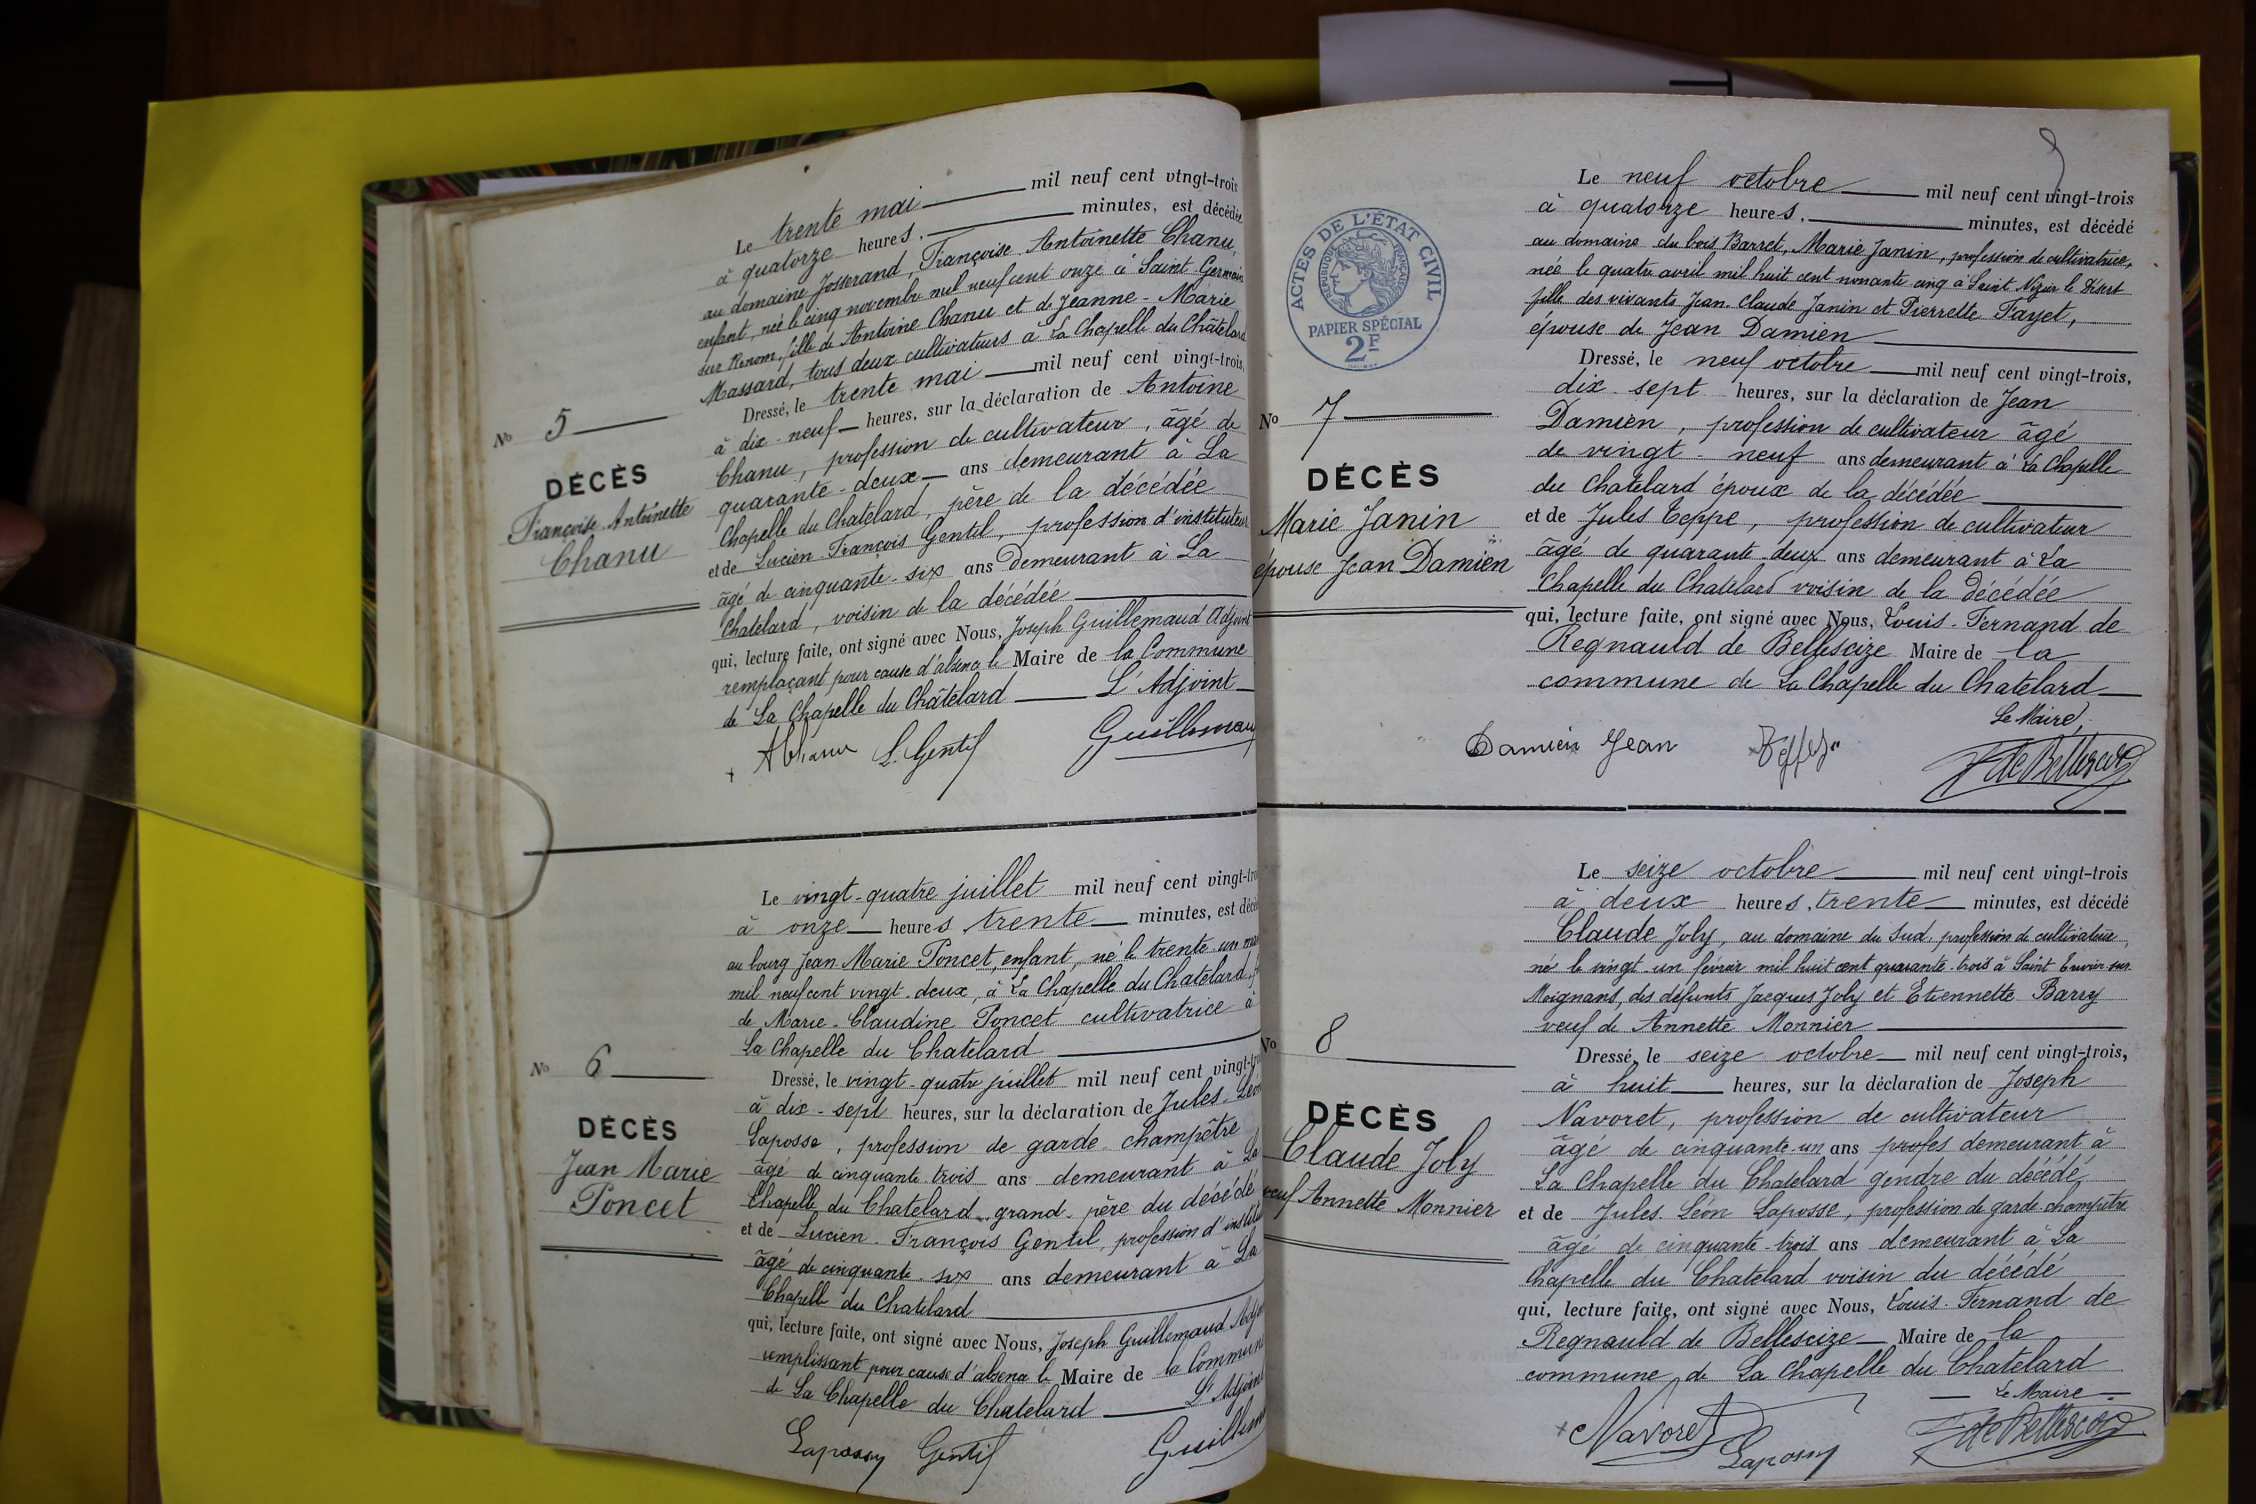 Le trente mai mil neuf cent vingt-trois
à quatorze heures, minutes, est décédée
au domaine Josserand, Françoise Antoinette Chanu,
enfant, née le cinq novembre mil neuf cent onze à Saint Germain
sur Renom, fille de Antoine Chanu et de Jeanne-Marie
Massard, tous deux cultivateurs à La Chapelle du Châtelard
Dressé, le trente mai mil neuf cent vingt-trois,
à dix-neuf heures, sur la déclaration de Antoine
Chanu, profession de cultivateur, âgé de
quarante-deux ans demeurant à La
Chapelle du Chatelard, père de la décédée
et de Lucien-François Gentil, profession d'instituteur
âgé de cinquante-six ans demeurant à La
Chatelard, voisin de la décédée
qui, lecture faite, ont signé avec Nous, Joseph Guillemaud Adjoint
remplaçant pour cause d'absence le Maire de la Commune
de La Chapelle du Châtelard L'Adjoint
AChanu L. Gentil Guillemau
No 5
DÉCÈS
Françoise-Antoinette
Chanu
Le vingt-quatre juillet mil neuf cent vingt-tro
à onze heures trente minutes, est décé
au bourg Jean Marie Poncet, enfant, né le trente-un ma
mil neuf cent vingt-deux, à La Chapelle du Chatelard, f
de Marie-Claudine Poncet cultivatrice à
La Chapelle du Chatelard
Dressé, le vingt-quatre juillet mil neuf cent vingt-tro
à dix-sept heures, sur la déclaration de Jules-Léon
Laposse, profession de garde-champêtre
âgé de cinquante-trois ans demeurant à La
Chapelle du Chatelard, grand-père du décédé
et de Lucien-François Gentil, profession d'institu
âgé de cinquante-six ans demeurant à La
Chapelle du Chatelard
qui, lecture faite, ont signé avec Nous, Joseph Guillemaud Adjo
remplissant pour cause d'absence le Maire de la Commun
de La Chapelle du Chatelard L'Adjoint
Gentil Guillem
No 6
DÉCÈS
Jean Marie
Poncet
ACTES DE L'ÉTAT CIVIL
RÉPUBLIQUE FRANÇAISE
PAPIER SPÉCIAL
2F
Le neuf octobre mil neuf cent vingt-trois
à quatorze heures, minutes, est décédé
au domaine du bois Barret, Marie Janin, profession de cultivatrice,
née le quatre avril mil huit cent nonante cinq à Saint Nizier le Désert
fille des vivants Jean-Claude Janin et Pierrette Fayet,
épouse de Jean Damien
Dressé, le neuf octobre mil neuf cent vingt-trois,
dix-sept heures, sur la déclaration de Jean
Damien, profession de cultivateur âgé
de vingt-neuf ans demeurant à La Chapelle
du Chatelard époux de la décédée
et de Jules Teppe, profession de cultivateur
âgé de quarante-deux ans demeurant à La
Chapelle du Chatelard voisin de la décédée
qui, lecture faite, ont signé avec Nous, Louis-Fernand de
Regnauld de Bellescize Maire de la
commune de La Chapelle du Chatelard
Le Maire,
Damien Jean
No 7
DÉCÈS
Marie Janin
épouse Jean Damien
Le seize octobre mil neuf cent vingt-trois
à deux heures, trente minutes, est décédé
Claude Joly, au domaine du Sud, profession de cultivateur,
né le vingt-un février mil huit cent quarante-trois à Saint
Moignans, des défunts Jacques Joly et Etiennette Barry
veuf de Annette Monnier
Dressé, le seize octobre mil neuf cent vingt-trois,
à huit heures, sur la déclaration de Joseph
Navoret, profession de cultivateur
âgé de cinquante-un ans profes demeurant à
La Chapelle du Chatelard gendre du décédé,
et de Jules Léon Laposse, profession de garde-champêtre
âgé de cinquante-trois ans demeurant à La
Chapelle du Chatelard voisin du décédé
qui, lecture faite, ont signé avec Nous, Louis-Fernand de
Regnauld de Bellescize Maire de la
commune de La Chapelle du Chatelard
Le Maire
Navoret
No 8
DÉCÈS
Claude Joly
veuf Annette Monnier